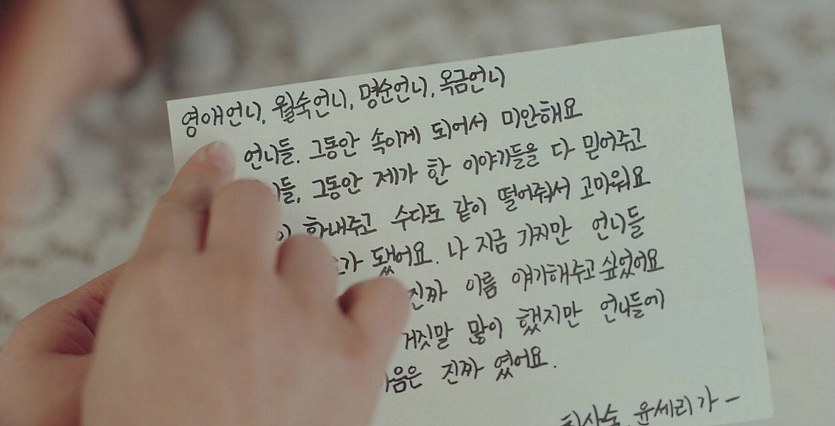 영애언니, 월숙언니, 명순언니, 옥금언니
언니들. 그동안 속이게 되어서 미안해요
그동안 제가 한 이야기들을 다 믿어주고
화내주고 수다도 같이 떨어줘서 고마워요
됐어요. 나 지금 가지만 언니들
진짜 이름 얘기해주고 싶었어요
거짓말 많이 했지만 언니들에
진짜 였어요.
윤세리가 -